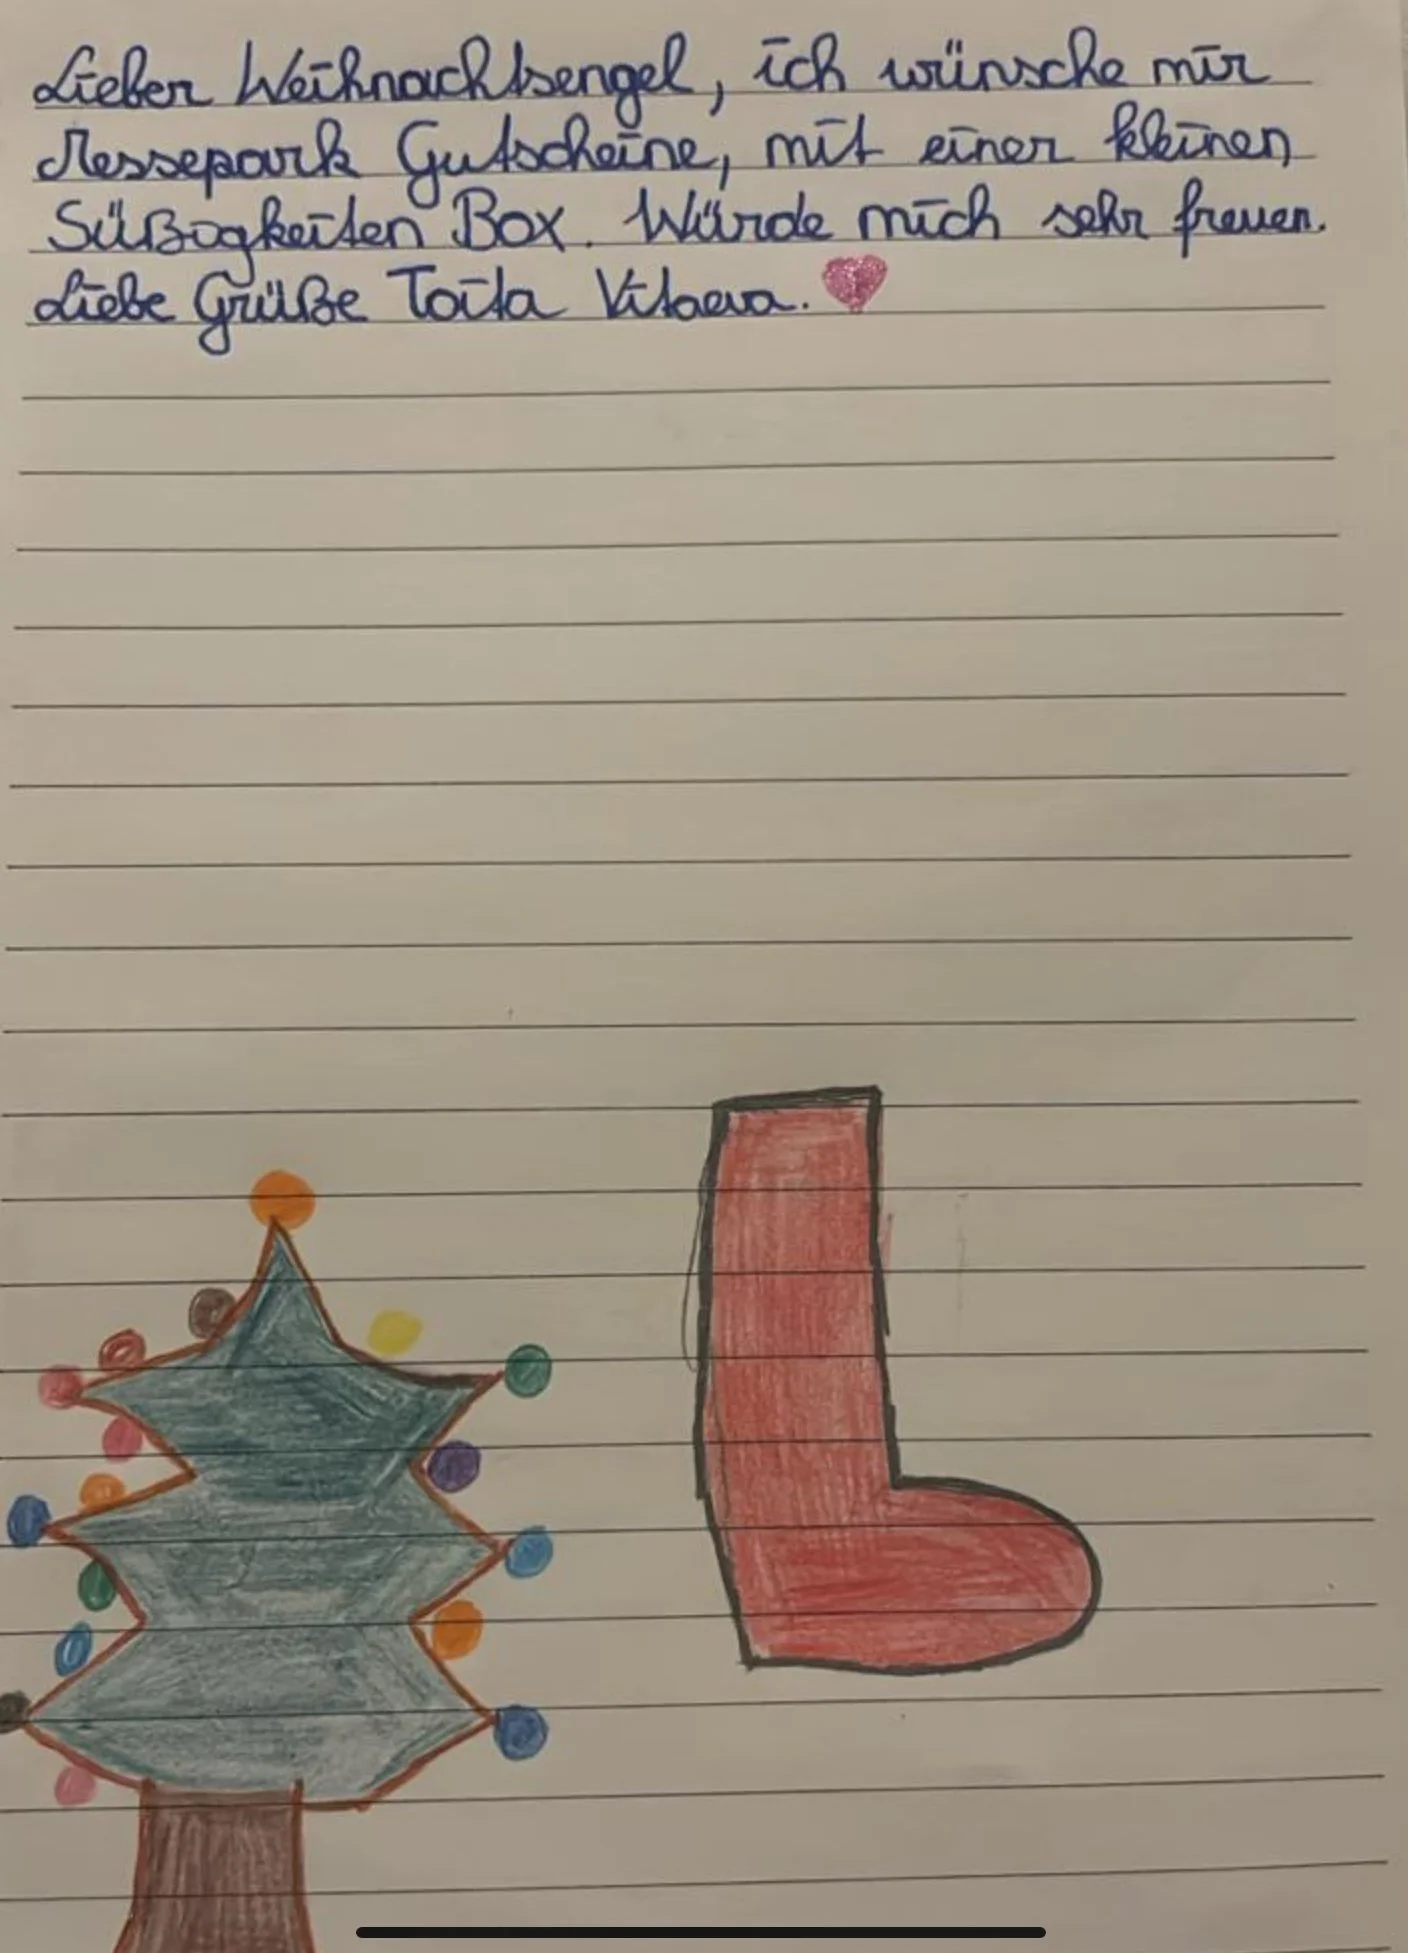 Lieber Weihnachtsengel, ich wünsche mir
Messepark Gutscheine, mit einer kleinen
Süßigkeiten Box. Würde mich sehr freuen.
Liebe Grüße Toita Vitaeva.